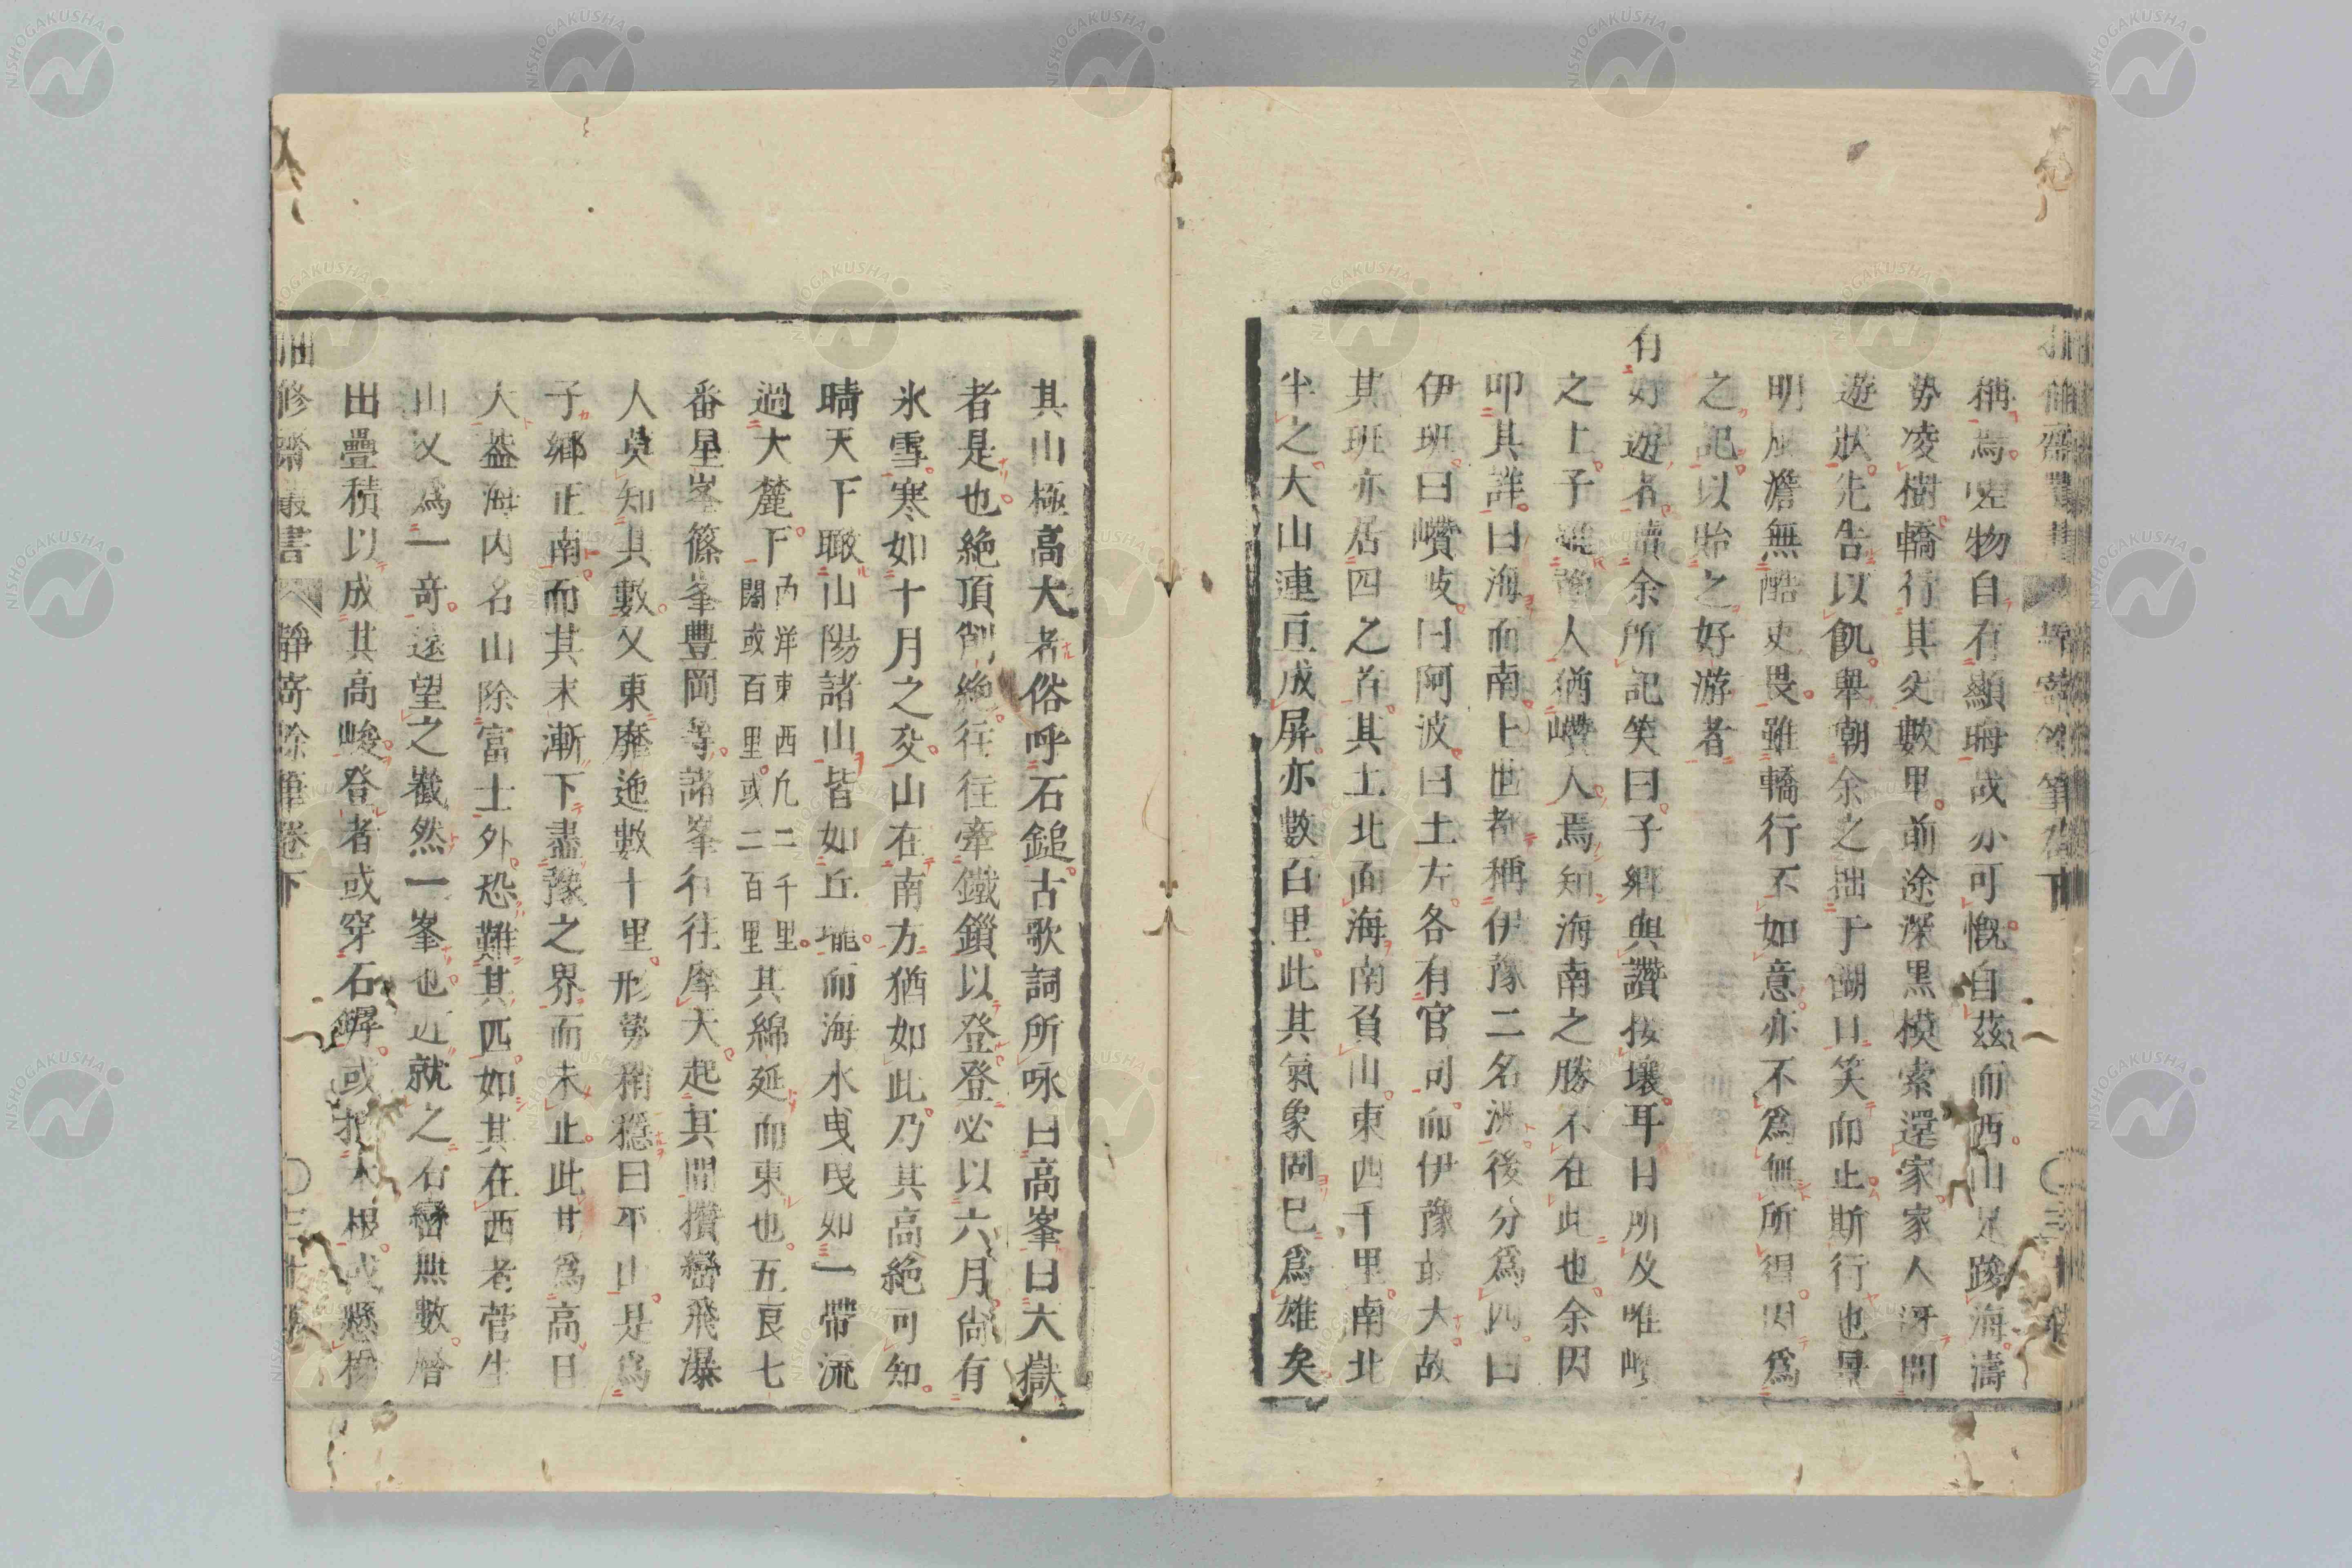 稱焉嗟物自有顯晦哉亦可慨自茲而西山足踐海濤
勢凌樹轎行其交數里前途深黑模索還家家人迓問
遊狀先告以飢擧朝余之拙于餬口笑而止斯行也晨
明風澹無酷吏畏雖轎行不如意亦不爲無所得因爲
之記以貽之好游者
有好遊者讀余所記笑曰子鄉與讚接壤耳目所及唯
之士子豫人猶讚人焉知海南之勝不在此也余因
叩其詳曰海而南上世者稱伊豫二名洲後分爲四曰
伊班曰巑岐曰阿波曰土左各有官司而伊豫最大故
其班亦居四之首其土北面海南負山東西千里南北
半之大山連亘成屏亦數百里此其氣象固已爲雄矣
其山極高大者俗呼石鎚古歌詞所咏曰高峯曰大嶽
者是也絶頂削絶往往牽鐵鎖以登登必以六月尙有
氷雪寒如十月之交山在南方猶如此乃其高絶可知
晴天下瞰山陽諸山皆如丘壠而海水曳曳如一帶流
過大麓下内洋東西凡二千里濶或百里或二百里其綿延而東也五良七
番星峯篠峯豐岡等諸峯行往摩天起其間攢巒飛瀑
人莫知其數又東靡迤數十里形勢稍穩曰平山是爲
子鄉正南而其末漸下盡豫之界而未止此其爲高且
大蓋海内名山除富士外恐難其匹如其在西者菅生
山又爲一奇遠望之巀然一峯也近就之石巒無數層
出疊積以成其高峻登者或穿石罅或把木根或懸梯
伷修齋叢書 靜寄餘筆卷下